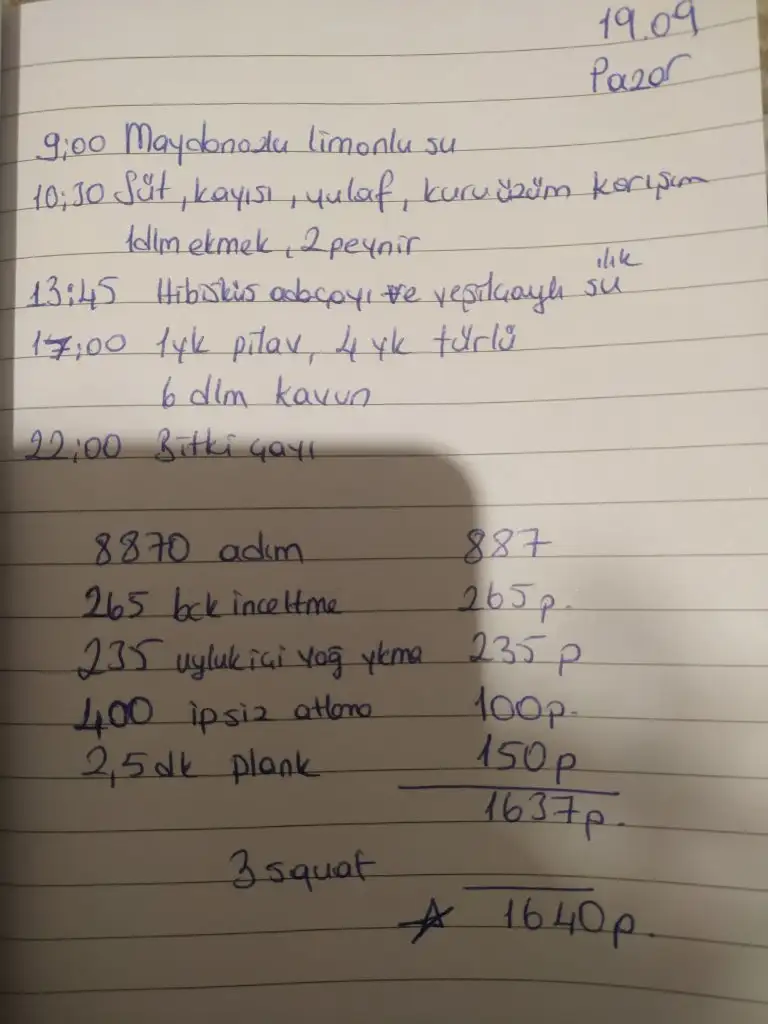 19.09
Pazar
9:00 Maydanozlu limonlu su
10:30 Süt, kayısı, yulaf, kuru üzüm karışım
1dlm ekmek, 2 peynir
13:45 Hibisküs adaçayı ve yeşilçaylı ılık su
17:00 1yk pilav, 4 yk türlü
6 dlm kavun
22:00 Bitki çayı
8870 adım 887
265 bck inceltme 265 p.
235 uyluk içi yağ ykma 235 p
400 ipsiz atlama 100p.
2,5 dk plank 150p
1637p.
3 squat
1640p.